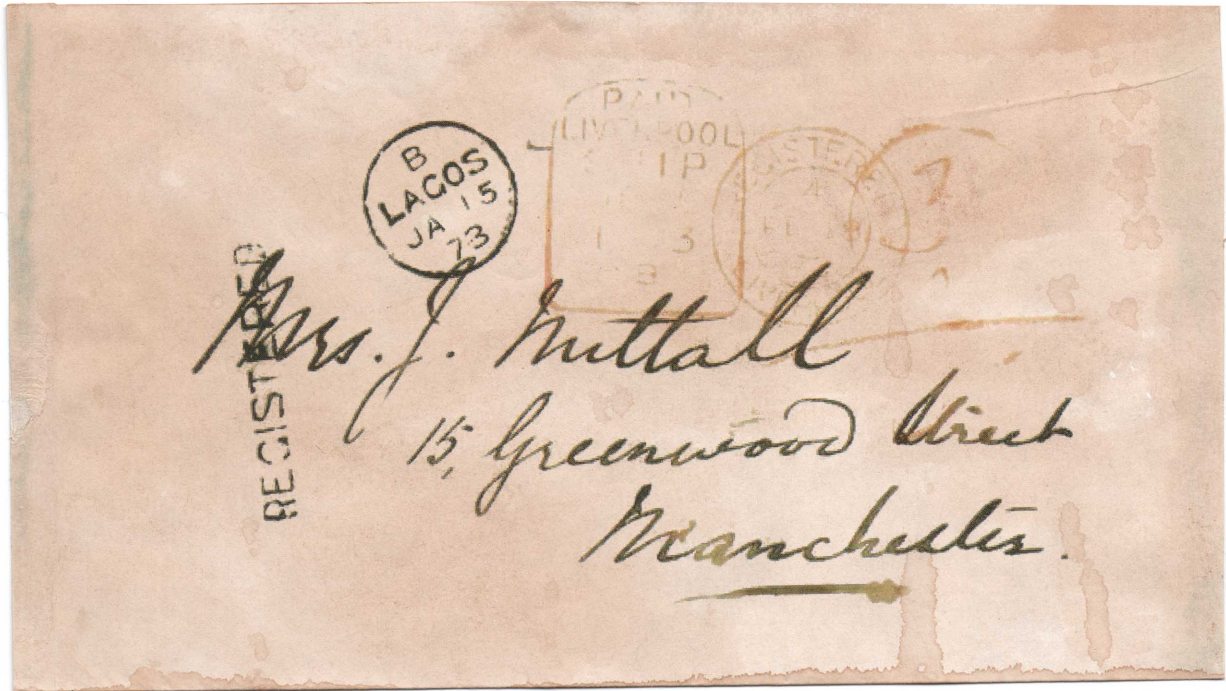 B
LAGOS
JA 15
73
PAID
LIVERPOOL
1P
REGISTERED
7
REGISTERED
Mrs. J. Nuttall
15, Greenwood Street
Manchester.